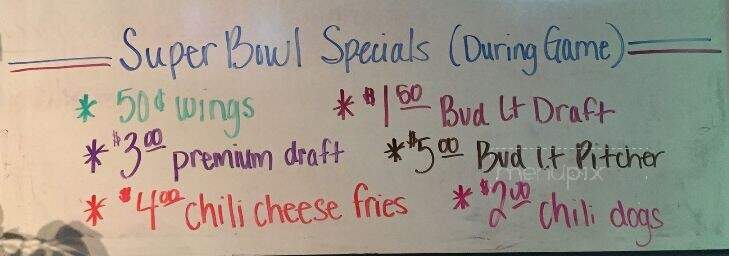 Super Bowl Specials (During Game)
* 50¢ wings * $1.50 Bud Lt Draft
* $3.00 premium draft * $5.00 Bud lt Pitcher
menupix
* $4.00 chili cheese fries * $2.00 chili dogs